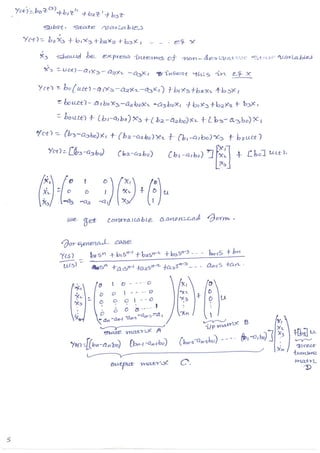 Y(t) = b0 z^(3) + b1 z'' + b2 z' + b3 z
subst. state variables
Y(t) = b0 ẋ3 + b1 x3 + b2 x2 + b3 x1 - - - - eq x
ẋ3 should be express interms of non-derivative state variables
ẋ3 = u(t) - a1x3 - a2x2 - a3x1 insert this in eq x
Y(t) = b0(u(t) - a1x3 - a2x2 - a3x1) + b1x3 + b2x2 + b3x1
= b0u(t) - a1b0x3 - a2b0x2 - a3b0x1 + b1x3 + b2x2 + b3x1
= b0u(t) + (b1-a1b0)x3 + (b2-a2b0)x2 + (b3-a3b0)x1
Y(t) = (b3-a3b0)x1 + (b2-a2b0)x2 + (b1-a1b0)x3 + b0u(t)
Y(t) = [(b3-a3b0) (b2-a2b0) (b1-a1b0)] [x1 x2 x3] + [b0] u(t)
(ẋ1 ẋ2 ẋ3) = (0 1 0 0 0 1 -a3 -a2 -a1) (x1 x2 x3) + (0 0 1) u
we get controllable canonical form.
For general case
Y(s) b0s^n + b1s^n-1 + b2s^n-2 + b3s^n-3 - - - bn-1s + bn
U(s) = s^n + a1s^n-1 + a2s^n-2 + a3s^n-3 - - - an-1s + an
state matrix A
I/P matrix B
Y(t) = [(bn-anb0) (bn-1-an-1b0) - - - (b1-a1b0)]
output matrix C.
direct
matrix
D
5